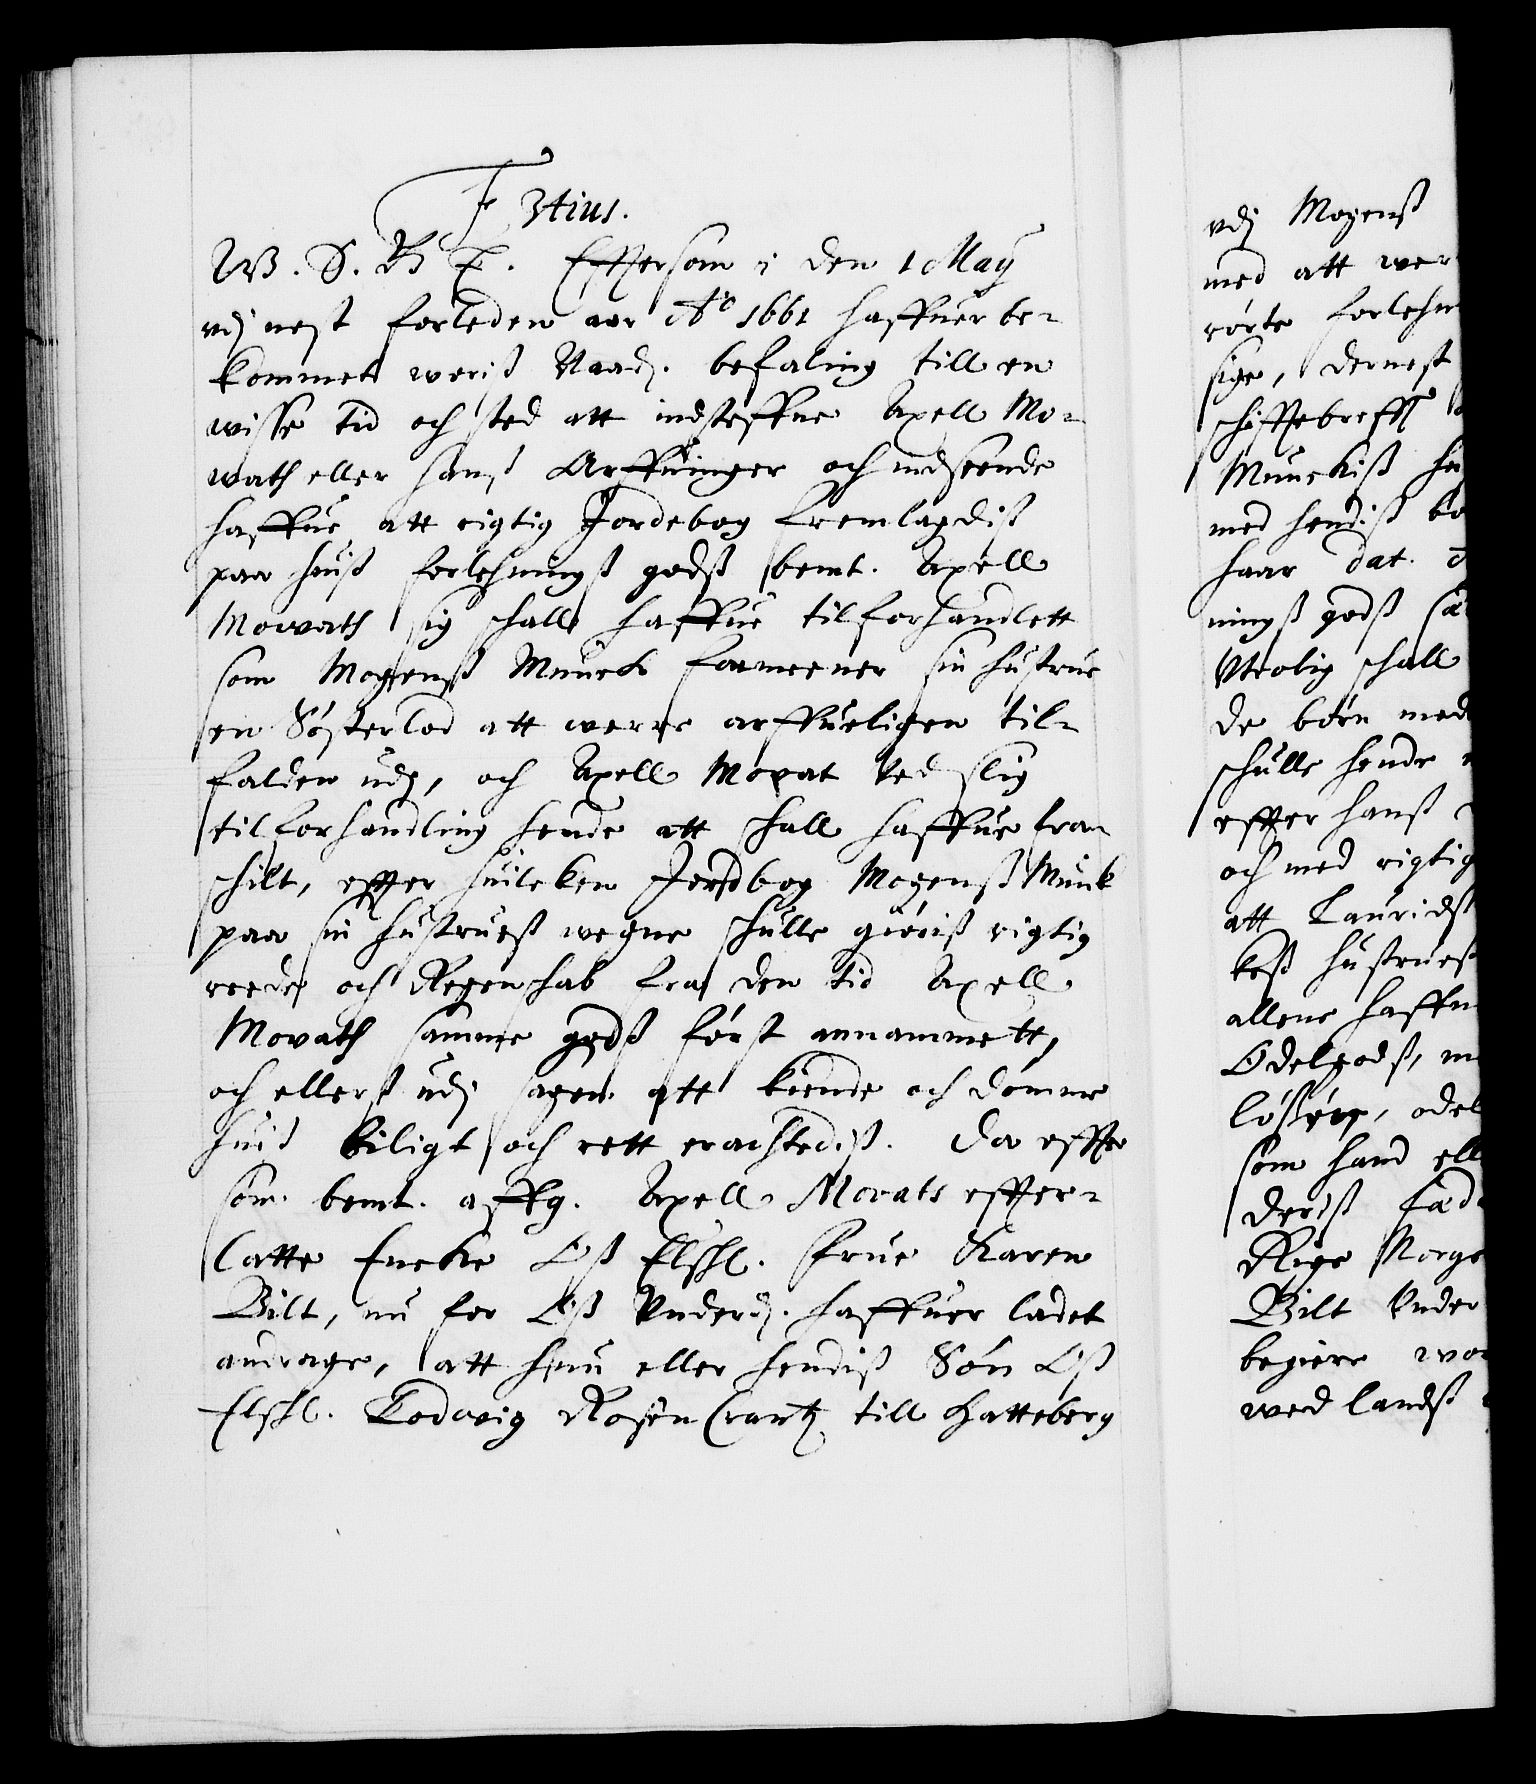 F 3tius.
W. S. B T. Effersom i den 1 Maÿ
udj nest forleden aar Ao 1661 haffuer be-
kommet woriß Naad. befaling till en
wisse tid och sted att indsteffne Axell Mo-
wath eller hanß Arffuinger och indseende
haffue att rigtig Jordebog fremlagdiß
paa huiß forlehningß godß bemt. Axell
Mowath sig schall haffue tilforhandlett
som Mogenß Munck formeener sin hustrue
en Søsterlod att werre arffueligen til-
falden udj, och Axell Movat ved slig
tilforhandling hende att schall haffue fra-
schilt, effter huilcken Jordbog Mogenß Munk
paa sin hustrueß wegne schulle giøriß rigtig
reede och Regenschab fra den tid Axell
Movath samme godß først annammett,
och ellerß udj sagen att kiende och dømme
huiß biligt och rett erachtediß. Da effter
som bemt. affg. Axell Movats effter-
latte Encke Oß Elschl. Frue Karen
Bilt, nu for Oß Underd. haffuer ladet
andrage, att hun eller hendiß Søn Oß
Elschl. Lodvig Rosencrantz till Hatteberg
udj Mogenß
med att wer
rørte forlehn
sige, dernest
schiftebreff
Munckiß
med hendiß
haar dat.
ningß godß
Utrolig schall
de børn med
schulle hende
effter hanß
och med rigtig
att Lauridß
keß hustrueß
allene haffu
Odelgodß,
løßøre, odel
som hand ell
deriß
Rige Norge
Bilt Under
begiere
wed landß